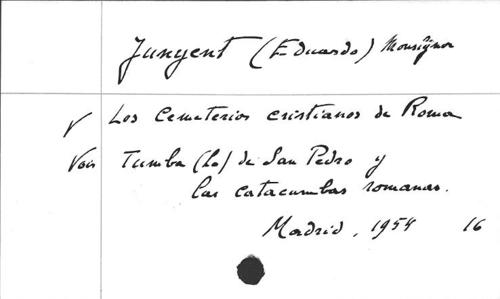 Junyent (Eduardo) Monsignor
V Los Cementerios cristianos de Roma
Voir Tumba (La) de San Pedro y
las catacumbas romanas.
Madrid, 1954 16